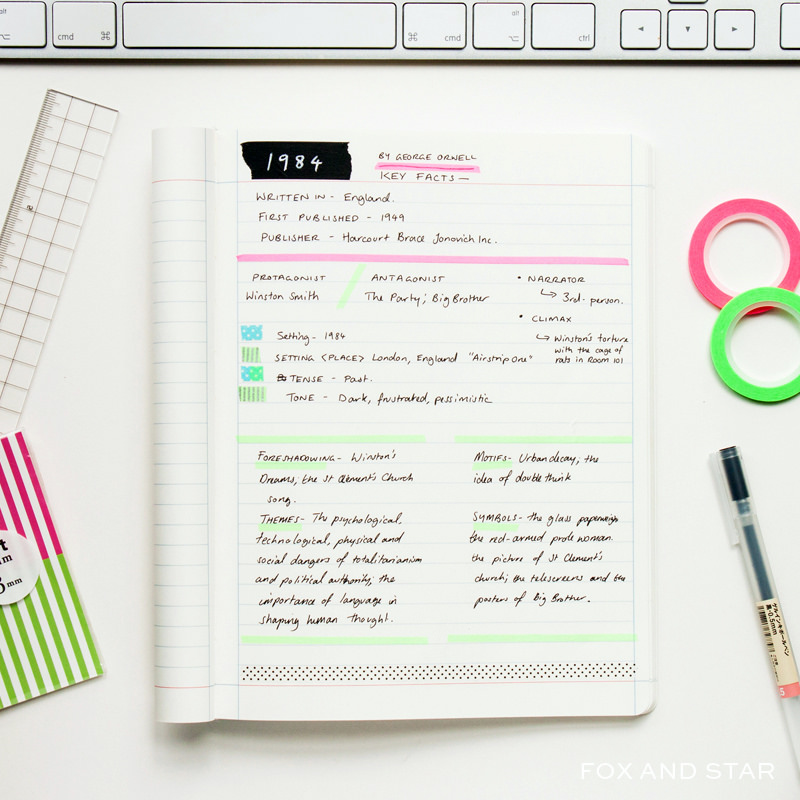 alt
cmd ⌘
⌘ cmd
alt
ctrl
1984
BY GEORGE ORWELL
KEY FACTS —
WRITTEN IN - England.
FIRST PUBLISHED - 1949
PUBLISHER - Harcourt Brace Jonovich Inc.
PROTAGONIST
Winston Smith
ANTAGONIST
The Party; Big Brother
• NARRATOR
↳ 3rd-person.
• CLIMAX
↳ Winston's torture
with the cage of
rats in Room 101
Setting - 1984
SETTING <PLACE> London, England "Airstrip One"
TENSE - Past.
TONE - Dark, frustrated, pessimistic
FORESHADOWING - Winston's
Dreams, the St Clement's Church
song.
THEMES - The psychological,
technological, physical and
social dangers of totalitarianism
and political authority; the
importance of language in
shaping human thought.
MOTIFS - Urban decay; the
idea of double think
SYMBOLS - the glass paperweight
the red-armed prole woman.
the picture of St Clement's
church; the telescreens and the
posters of Big Brother.
ゲルインキボールペン
黒・0.5mm
5
mm
FOX AND STAR